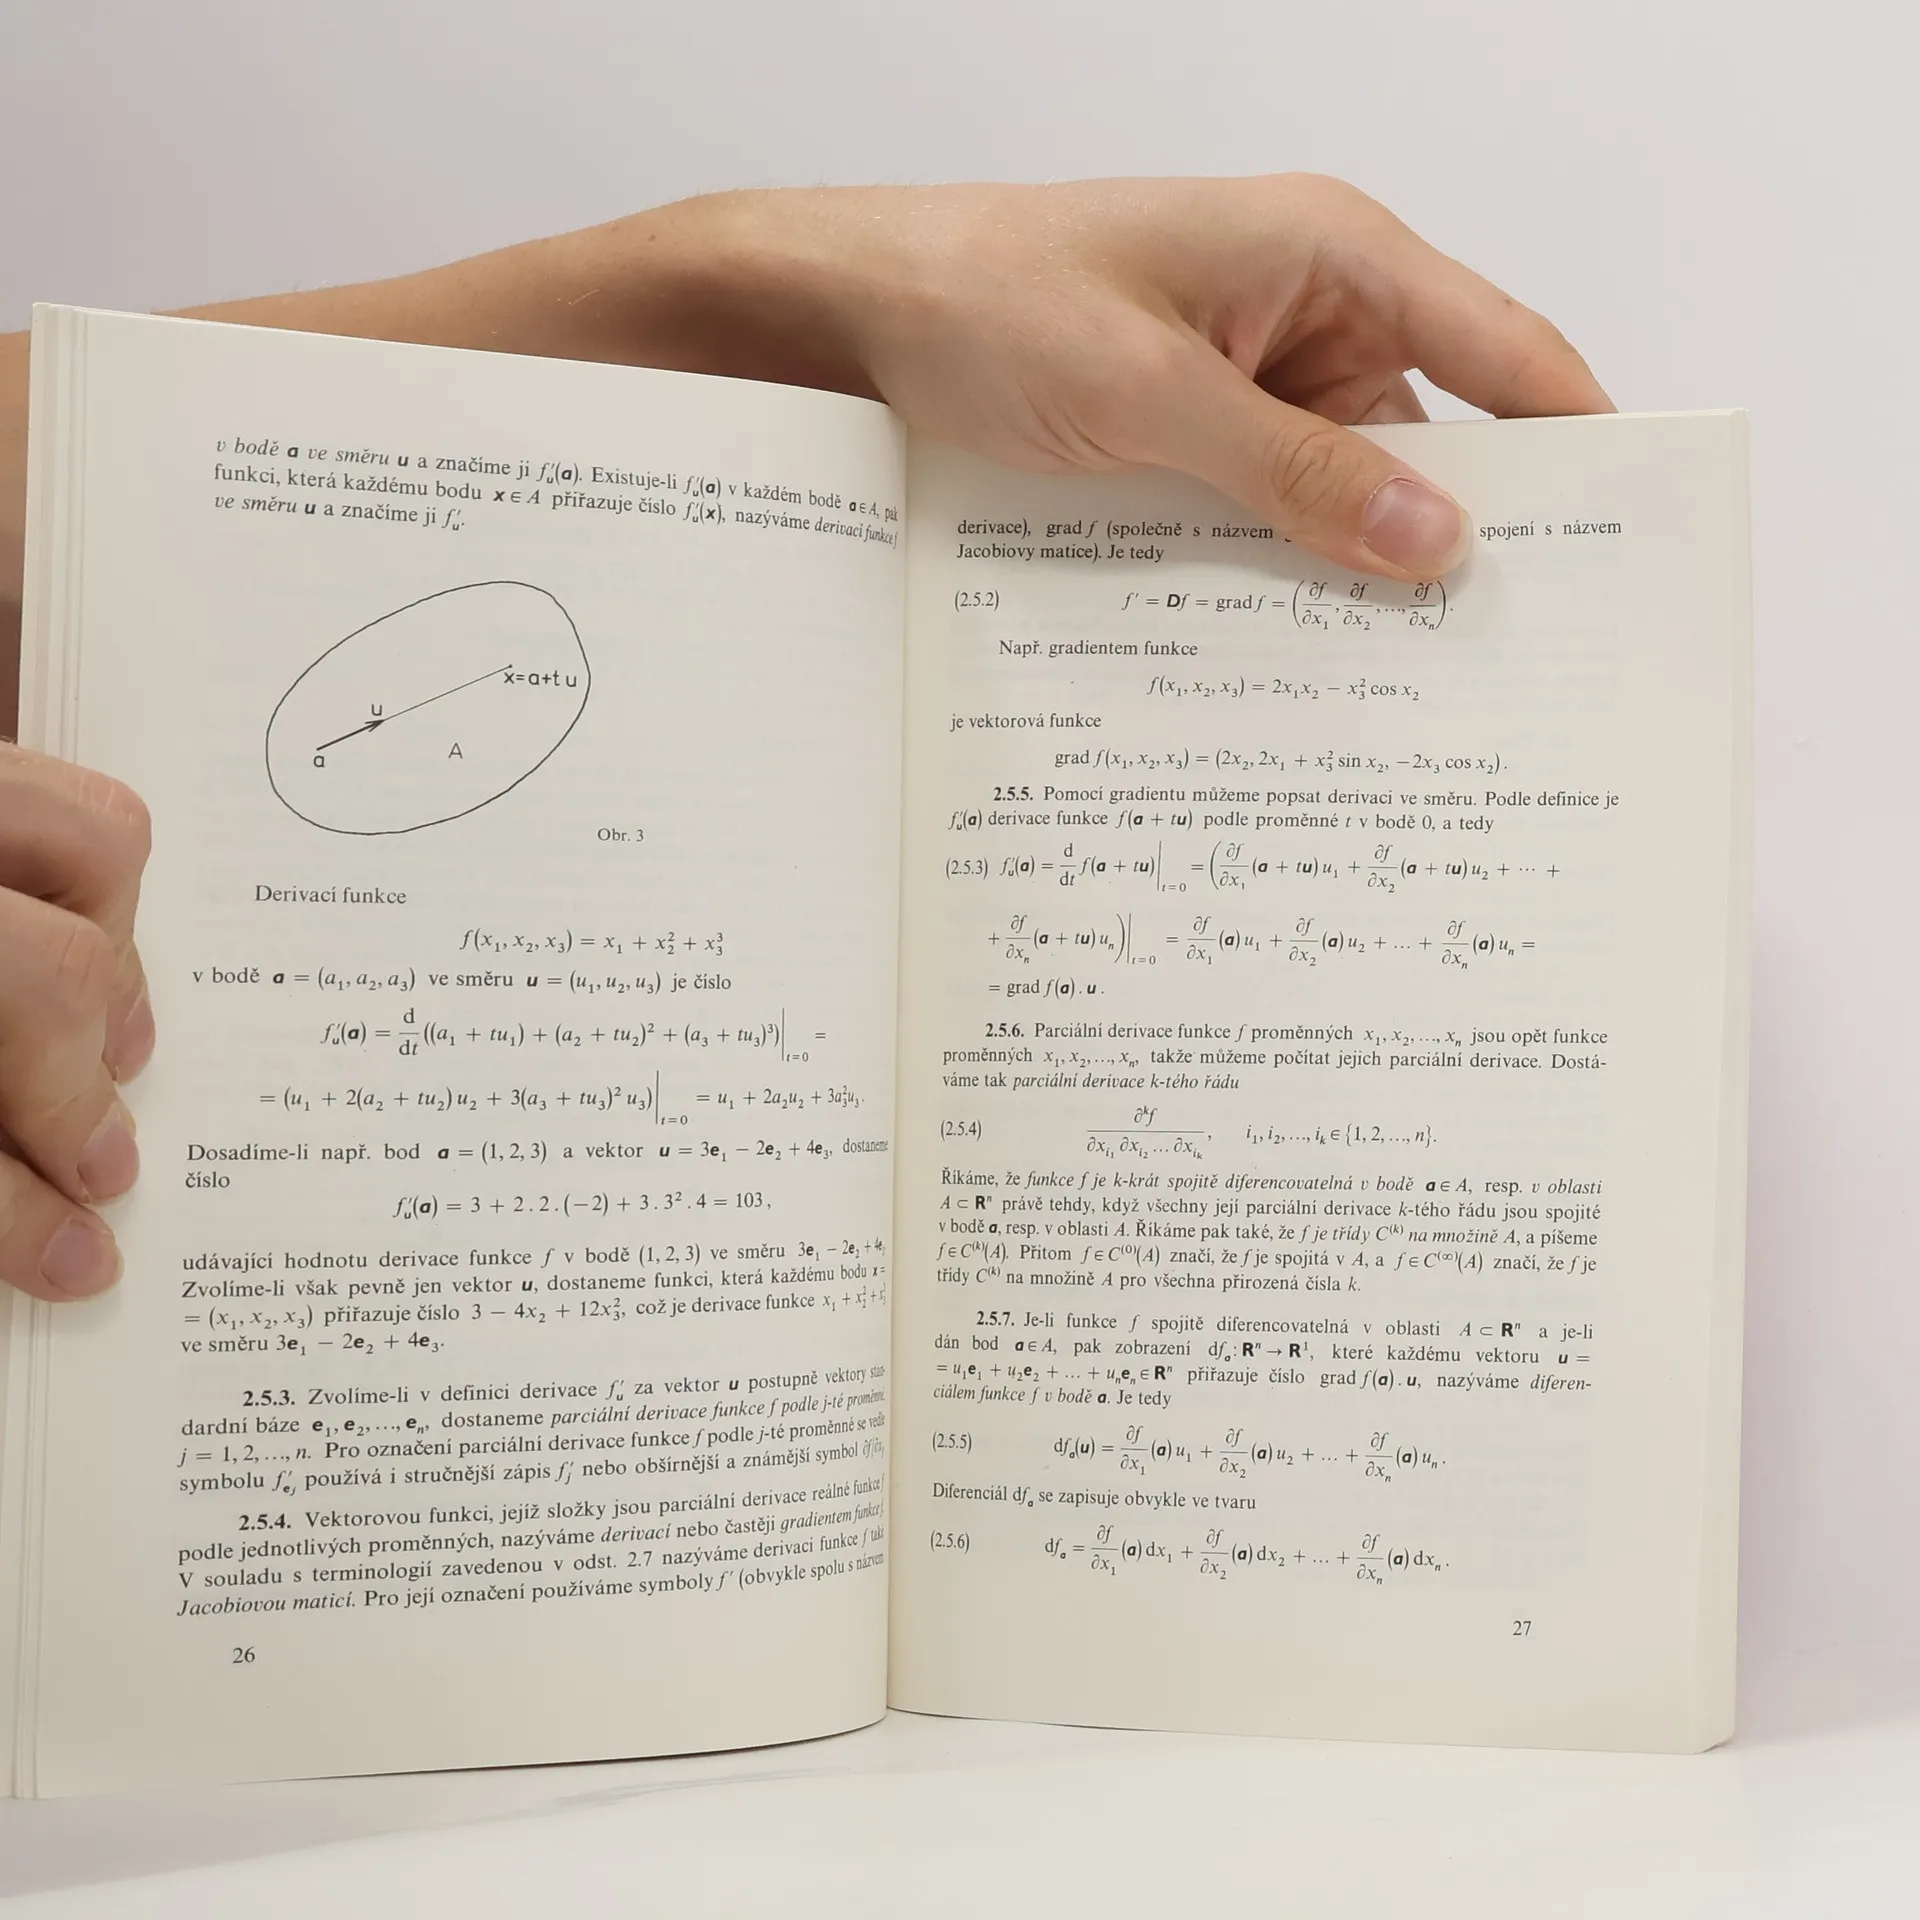 v bodě a ve směru u a značíme ji f′ᵤ(a). Existuje-li f′ᵤ(a) v každém bodě a ∈ A, pak
funkci, která každému bodu x ∈ A přiřazuje číslo f′ᵤ(x), nazýváme derivací funkce f
ve směru u a značíme ji f′ᵤ.
x=a+tu
u
a
A
Obr. 3
Derivací funkce
f(x₁, x₂, x₃) = x₁ + x₂² + x₃³
v bodě a = (a₁, a₂, a₃) ve směru u = (u₁, u₂, u₃) je číslo
f′ᵤ(a) = d/dt ((a₁ + tu₁) + (a₂ + tu₂)² + (a₃ + tu₃)³)|ₜ₌₀ =
= (u₁ + 2(a₂ + tu₂) u₂ + 3(a₃ + tu₃)² u₃)|ₜ₌₀ = u₁ + 2a₂u₂ + 3a₃²u₃.
Dosadíme-li např. bod a = (1, 2, 3) a vektor u = 3e₁ − 2e₂ + 4e₃, dostaneme
číslo
f′ᵤ(a) = 3 + 2 . 2 . (−2) + 3 . 3² . 4 = 103,
udávající hodnotu derivace funkce f v bodě (1, 2, 3) ve směru 3e₁ − 2e₂ + 4e₃.
Zvolíme-li však pevně jen vektor u, dostaneme funkci, která každému bodu x =
= (x₁, x₂, x₃) přiřazuje číslo 3 − 4x₂ + 12x₃², což je derivace funkce x₁ + x₂² + x₃³
ve směru 3e₁ − 2e₂ + 4e₃.
2.5.3. Zvolíme-li v definici derivace f′ᵤ za vektor u postupně vektory stan-
dardní báze e₁, e₂, ..., eₙ, dostaneme parciální derivace funkce f podle j-té proměnné,
j = 1, 2, ..., n. Pro označení parciální derivace funkce f podle j-té proměnné se vedle
symbolu f′ₑⱼ používá i stručnější zápis f′ⱼ nebo obšírnější a známější symbol ∂f/∂xⱼ
2.5.4. Vektorovou funkci, jejíž složky jsou parciální derivace reálné funkce f
podle jednotlivých proměnných, nazýváme derivací nebo častěji gradientem funkce f.
V souladu s terminologií zavedenou v odst. 2.7 nazýváme derivaci funkce f také
Jacobiovou maticí. Pro její označení používáme symboly f′ (obvykle spolu s názvem
26
derivace), grad f (společně s názvem spojení s názvem
Jacobiovy matice). Je tedy
(2.5.2) f′ = Df = grad f = (∂f/∂x₁, ∂f/∂x₂, ..., ∂f/∂xₙ).
Např. gradientem funkce
f(x₁, x₂, x₃) = 2x₁x₂ − x₃² cos x₂
je vektorová funkce
grad f(x₁, x₂, x₃) = (2x₂, 2x₁ + x₃² sin x₂, −2x₃ cos x₂).
2.5.5. Pomocí gradientu můžeme popsat derivaci ve směru. Podle definice je
f′ᵤ(a) derivace funkce f(a + tu) podle proměnné t v bodě 0, a tedy
(2.5.3) f′ᵤ(a) = d/dt f(a + tu)|ₜ₌₀ = (∂f/∂x₁ (a + tu) u₁ + ∂f/∂x₂ (a + tu) u₂ + ... +
+ ∂f/∂xₙ (a + tu) uₙ)|ₜ₌₀ = ∂f/∂x₁ (a) u₁ + ∂f/∂x₂ (a) u₂ + ... + ∂f/∂xₙ (a) uₙ =
= grad f(a) . u .
2.5.6. Parciální derivace funkce f proměnných x₁, x₂, ..., xₙ jsou opět funkce
proměnných x₁, x₂, ..., xₙ, takže můžeme počítat jejich parciální derivace. Dostá-
váme tak parciální derivace k-tého řádu
(2.5.4) ∂ᵏf/∂xᵢ₁ ∂xᵢ₂ ... ∂xᵢₖ, i₁, i₂, ..., iₖ ∈ {1, 2, ..., n}.
Říkáme, že funkce f je k-krát spojitě diferencovatelná v bodě a ∈ A, resp. v oblasti
A ⊂ Rⁿ právě tehdy, když všechny její parciální derivace k-tého řádu jsou spojité
v bodě a, resp. v oblasti A. Říkáme pak také, že f je třídy C⁽ᵏ⁾ na množině A, a píšeme
f ∈ C⁽ᵏ⁾(A). Přitom f ∈ C⁽⁰⁾(A) značí, že f je spojitá v A, a f ∈ C^(∞)(A) značí, že f je
třídy C⁽ᵏ⁾ na množině A pro všechna přirozená čísla k.
2.5.7. Je-li funkce f spojitě diferencovatelná v oblasti A ⊂ Rⁿ a je-li
dán bod a ∈ A, pak zobrazení dfₐ: Rⁿ → R¹, které každému vektoru u =
= u₁e₁ + u₂e₂ + ... + uₙeₙ ∈ Rⁿ přiřazuje číslo grad f(a) . u, nazýváme diferen-
ciálem funkce f v bodě a. Je tedy
(2.5.5) dfₐ(u) = ∂f/∂x₁ (a) u₁ + ∂f/∂x₂ (a) u₂ + ... + ∂f/∂xₙ (a) uₙ .
Diferenciál dfₐ se zapisuje obvykle ve tvaru
(2.5.6) dfₐ = ∂f/∂x₁ (a) dx₁ + ∂f/∂x₂ (a) dx₂ + ... + ∂f/∂xₙ (a) dxₙ .
27